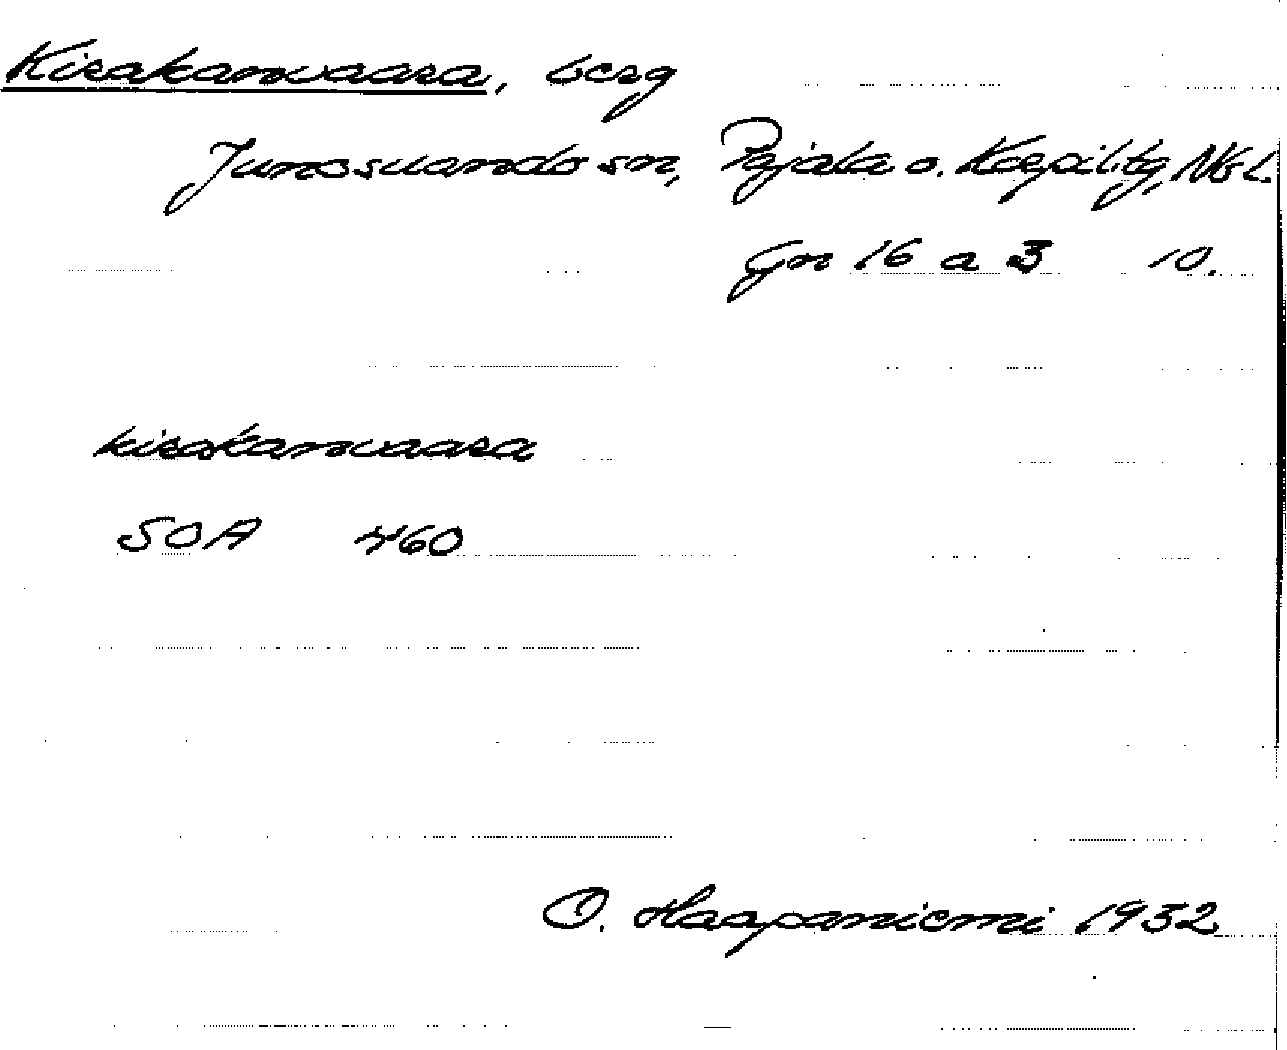 Kirakanvaara, berg
Junosuando sn, Pajala o. Korpilltg, Nb L.
Gn 16 a 3 10.
kirakanvaara
SOA 460
O. Haapaniemi 1932